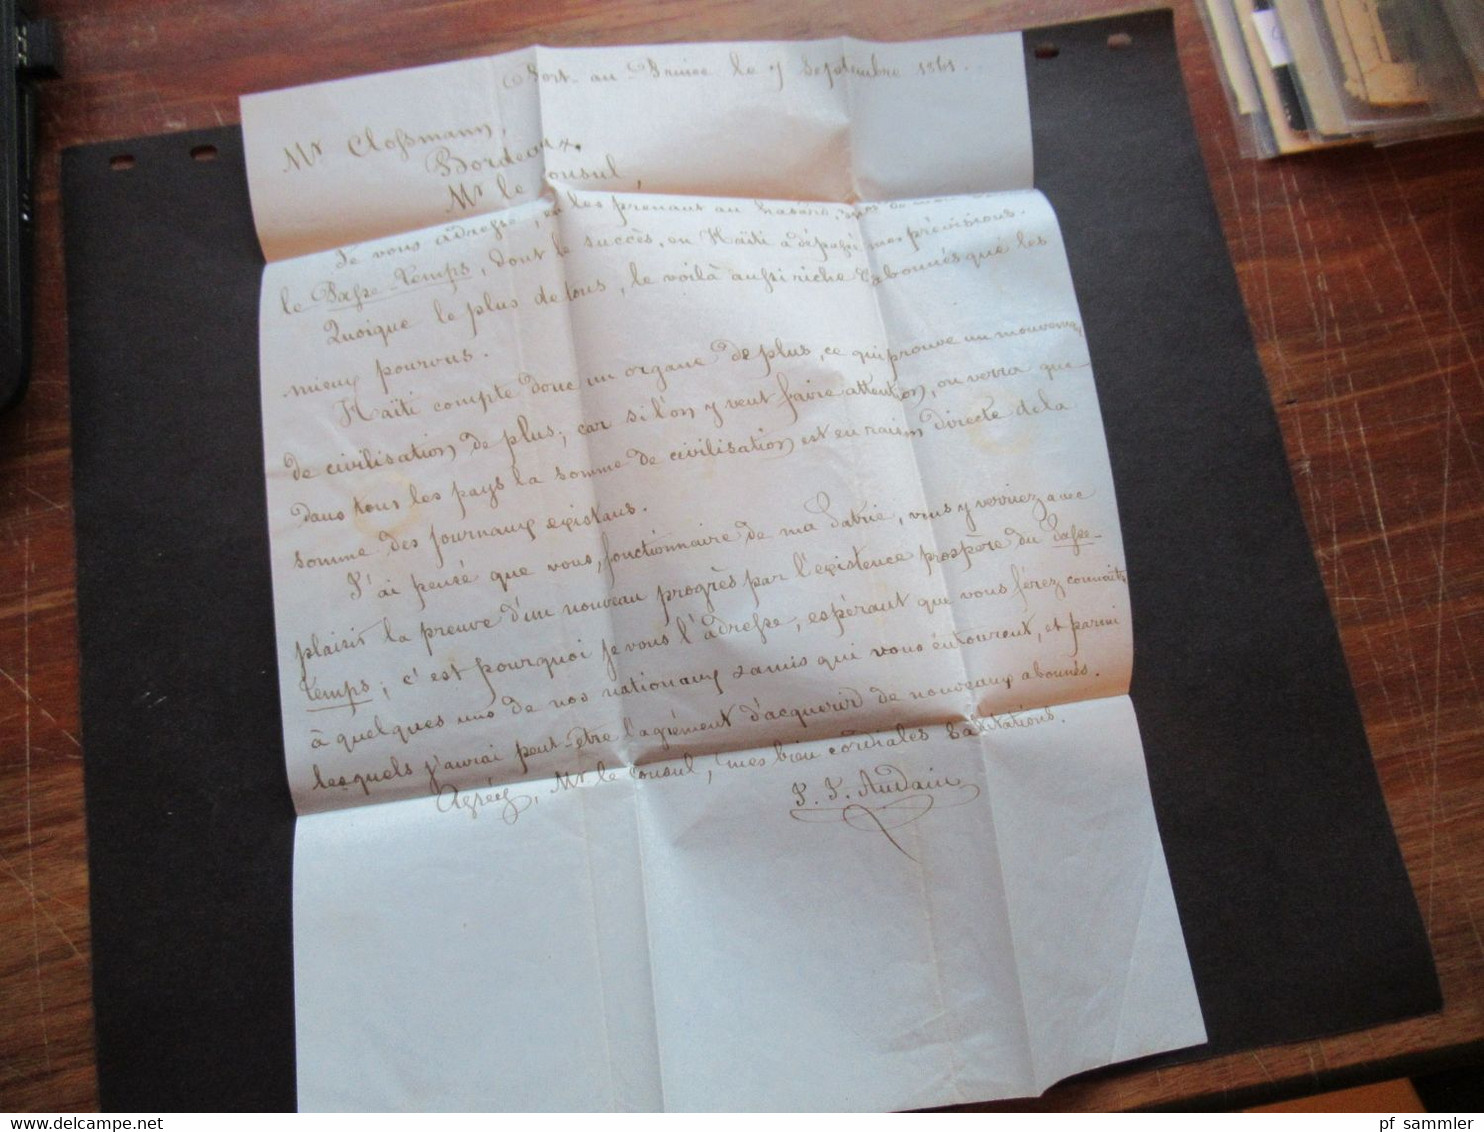 Port-au-Prince le 7 Septembre 1861.
Mr Cloßmann,
Bordeaux.
Mr le Consul,
Je vous adresse, en les prenant au hasard, de
le Passe-Temps, dont le succès, en Haïti a dépassé mes prévisions.
Quoique le plus de tous, le voilà aussi riche d'abonnés que les
mieux pourvus.
Haïti compte donc un organe de plus, ce qui prouve un mouvement
de civilisation de plus; car si l'on y veut faire attention, on verra que
dans tous les pays la somme de civilisation est en raison directe de la
somme des journaux existans.
J'ai pensé que vous, fonctionnaire de ma Patrie, vous y verriez avec
plaisir la preuve d'un nouveau progrès par l'existence prospère du Passe-
Temps; c'est pourquoi je vous l'adresse, espérant que vous ferez connaître
à quelques uns de nos nationaux & amis qui vous entourent, et parmi
lesquels j'aurai peut-être l'agrément d'acquérir de nouveaux abonnés.
Agréez, Mr le Consul, mes bien cordiales salutations.
J. J. Audain
pf sammler